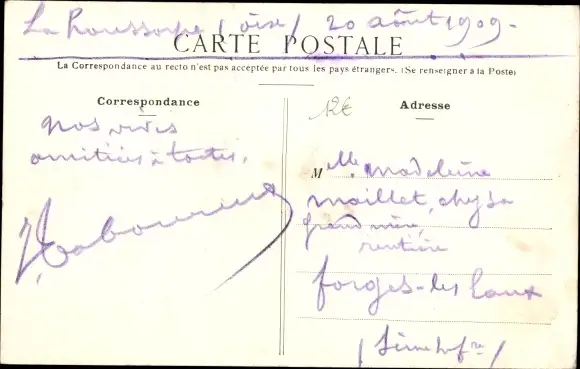 La Houssoye (Oise) 20 août 1909.
CARTE POSTALE
La Correspondance au recto n'est pas acceptée par tous les pays étrangers. (Se renseigner à la Poste)
Correspondance
nos vives
amitiés à toutes.
12€
Adresse
Melle. Madeleine
Maillet, chez sa
grand mère,
rentière
forges-les Eaux
(Seine Infre)